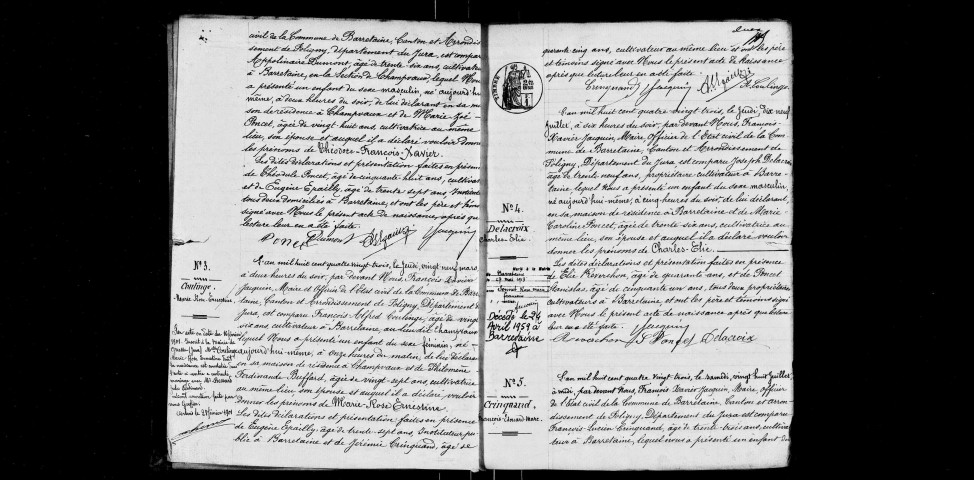 civil de la Commune de Barretaine, Canton et Arrondis-
sement de Poligny, département du Jura, est comparu
Appolinaire Dumont, âgé de trente-six ans, cultivateur
à Barretaine, en la Section de Champvaux, lequel Nous
a présenté un enfant du sexe masculin, né aujourd'hui
même, à deux heures du soir, de lui déclarant en sa mai-
son de résidence à Champvaux et de Marie-Zoé-
Poncet, âgée de vingt huit ans, cultivatrice au même
lieu, son épouse et auquel il a déclaré vouloir donner
les prénoms de Théodore-François-Xavier.
Les dites déclarations et présentation faites en présence
de Théodule Poncet, âgé de cinquante huit ans, cultivateur
et de Eugène Epailly, âgé de trente sept ans, Instituteur
tous deux domiciliés à Barretaine, et ont les père et témoins
signé avec Nous le présent acte de naissance, après que
lecture leur en a été faite.
Poncet Dumont Epailly Jacquin
N° 3.
Coulonge,
Marie-Rose-Ernestine.
L'an mil huit cent quatre vingt-trois, le Jeudi, vingt neuf mars
à deux heures du soir, par devant Nous, François Xavier
Jacquin, Maire et Officier de l'Etat civil de la Commune de Barre-
taine, Canton et Arrondissement de Poligny, Département du
Jura, est comparu François Alfred Coulonge, âgé de vingt
six ans cultivateur à Barretaine, au lieu dit Champvaux
lequel Nous a présenté un enfant du sexe féminin, né
aujourd'hui même, à onze heures du matin, de lui déclarant
en sa maison de résidence à Champvaux et de Philomène
Ferdinande Buffard, âgée de vingt-sept ans, cultivatrice
au même lieu son épouse et auquel il a déclaré vouloir
donner les prénoms de Marie-Rose Ernestine
Les dites déclarations et présentation faites en présence
de Eugène Epailly, âgé de trente-sept ans, Instituteur pu-
blic à Barretaine et de Jérémie Cringuand, âgé de
quarante cinq ans, cultivateur au même lieu et ont les père
et témoins signé avec Nous le présent acte de naissance
après que lecture leur en a été faite.
Cringuand Jacquin Epailly A. Coulonge
N° 4.
Delacroix
Charles-Elie.
L'an mil huit cent quatre vingt trois, le Jeudi, dix neuf
juillet, à six heures du soir, par devant Nous, François
Xavier Jacquin Maire, Officier de l'Etat civil de la Com-
mune de Barretaine, Canton et Arrondissement de
Poligny, Département du Jura est comparu Joseph Delacroix
âgé de trente neuf ans, propriétaire cultivateur à Barre-
taine, lequel Nous a présenté un enfant du sexe masculin,
né aujourd'hui même, à cinq heures du soir, de lui déclarant,
en sa maison de résidence à Barretaine et de Marie-
Caroline Poncet, âgée de trente-six ans, cultivatrice au
même lieu, son épouse et auquel il a déclaré vouloir
donner les prénoms de Charles-Elie.
Les dites déclarations et présentation faites en présence
de Elie Revachon, âgé de quarante ans, et de Poncet
Stanislas, âgé de cinquante un ans, tous deux propriétaires
cultivateurs à Barretaine, et ont les père et témoins signé
avec Nous le présent acte de naissance après que lecture
leur en a été faite. Jacquin
Revachon S Poncet Delacroix
Décédé le 24
Avril 1959 à
Barretaine
N° 5.
Cringuand,
François-Léonard-Marc.
L'an mil huit cent quatre vingt trois, le samedi, vingt huit Juillet
à midi, par devant Nous, François Xavier Jacquin, Maire, officier
de l'Etat civil de la Commune de Barretaine, Canton et arron-
dissement de Poligny, Département du Jura est comparu
François Lucien Cringuand, âgé de trente-trois ans, cultiva-
teur à Barretaine, lequel nous a présenté un enfant du